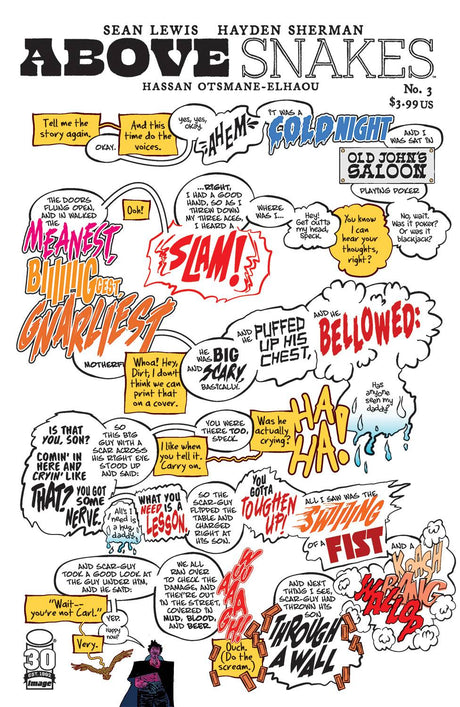 SEAN LEWIS HAYDEN SHERMAN
ABOVE SNAKES
HASSAN OTSMANE-ELHAOU
No. 3
$3.99 US
Tell me the
story again.
OKAY.
And this
time do the
voices.
yes, yes,
okay.
AHEM
IT WAS A
COLD NIGHT
AND I
WAS SAT IN
OLD JOHN'S
SALOON
PLAYING POKER
THE DOORS
FLUNG OPEN,
AND IN WALKED
THE
MEANEST,
BIIIIIIGGEST,
GNARLIEST
MOTHERF
Ooh!
...RIGHT,
I HAD A GOOD
HAND, SO AS I
THREW DOWN
MY THREE ACES,
I HEARD A
SLAM!
WHERE
WAS I...
Hey!
Get outta
my head,
Speck.
You know
I can
hear your
thoughts,
right?
No, wait.
Was it poker?
Or was it
blackjack?
Whoa! Hey,
Dirt, I don't
think we can
print that
on a cover.
HE
WAS BIG
AND SCARY,
BASICALLY.
AND HE
PUFFED
UP HIS
CHEST,
AND HE
BELLOWED:
Has
anyone
seen my
daddy?
Was he
actually
crying?
HA
HA!
YOU WERE
THERE TOO,
SPECK.
I like when
you tell it.
Carry on.
SO
THIS BIG
GUY WITH A
SCAR ACROSS
HIS RIGHT EYE
STOOD UP
AND SAID:
IS THAT
YOU, SON?
COMIN' IN
HERE AND
CRYIN' LIKE
THAT? YOU GOT
SOME
NERVE.
All I
need is
a hug,
daddy.
WHAT YOU
NEED IS A
LESSON.
SO THE
SCAR-GUY
FLIPPED THE
TABLE AND
CHARGED
RIGHT AT
HIS SON.
YOU
GOTTA
TOUGHEN
UP!
ALL I SAW WAS THE
SWINING
OF A FIST
AND A
KRASH
BANG
WALLOP
AND NEXT
THING I SEE,
SCAR-GUY HAD
THROWN HIS
SON
THROUGH
A WALL
Ouch.
(Do the
scream.)
WE ALL
RAN OVER
TO CHECK THE
DAMAGE, AND
THEY'RE OUT
IN THE STREET,
COVERED IN
MUD, BLOOD,
AND BEER.
AND SCAR-GUY
TOOK A GOOD LOOK AT
THE GUY UNDER HIM,
AND HE SAID:
"Wait--
you're not Carl."
YEP.
Happy
now?
Very.
30
EST. 1992
image